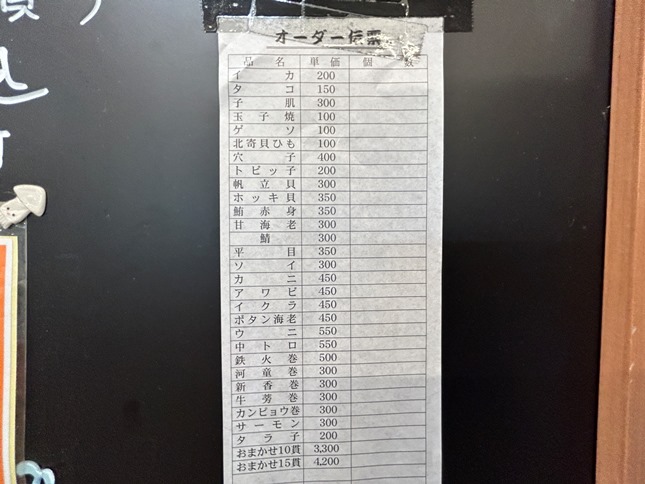 オーダー伝票
品名 単価 個数
イカ 200
タコ 150
子肌 300
玉子焼 100
ゲソ 100
北寄貝ひも 100
穴子 400
トビッ子 200
帆立貝 300
ホッキ貝 350
鮪赤身 350
甘海老 300
鯖 300
平目 350
ソイ 300
カニ 450
アワビ 450
イクラ 450
ボタン海老 450
ウニ 550
中トロ 550
鉄火巻 500
河童巻 300
新香巻 300
牛蒡巻 300
カンピョウ巻 300
サーモン 300
タラ子 200
おまかせ10貫 3,300
おまかせ15貫 4,200